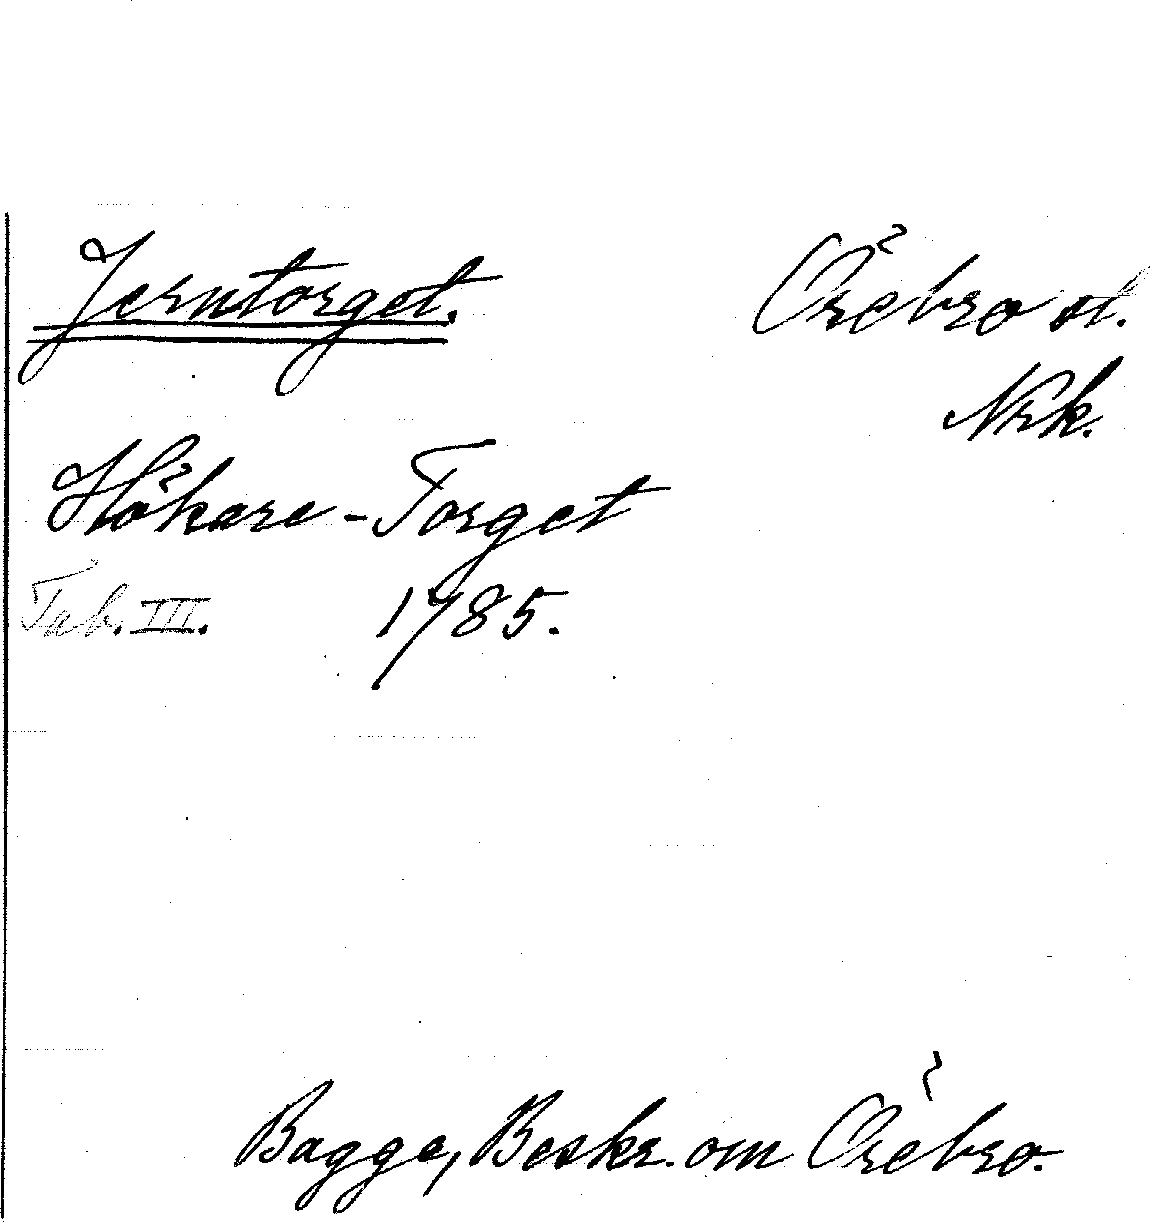 Jerntorget. Örebro st.
Nrk.
Hökare-Torget
Tab. III. 1785.
Bagge, Beskr. om Örebro.